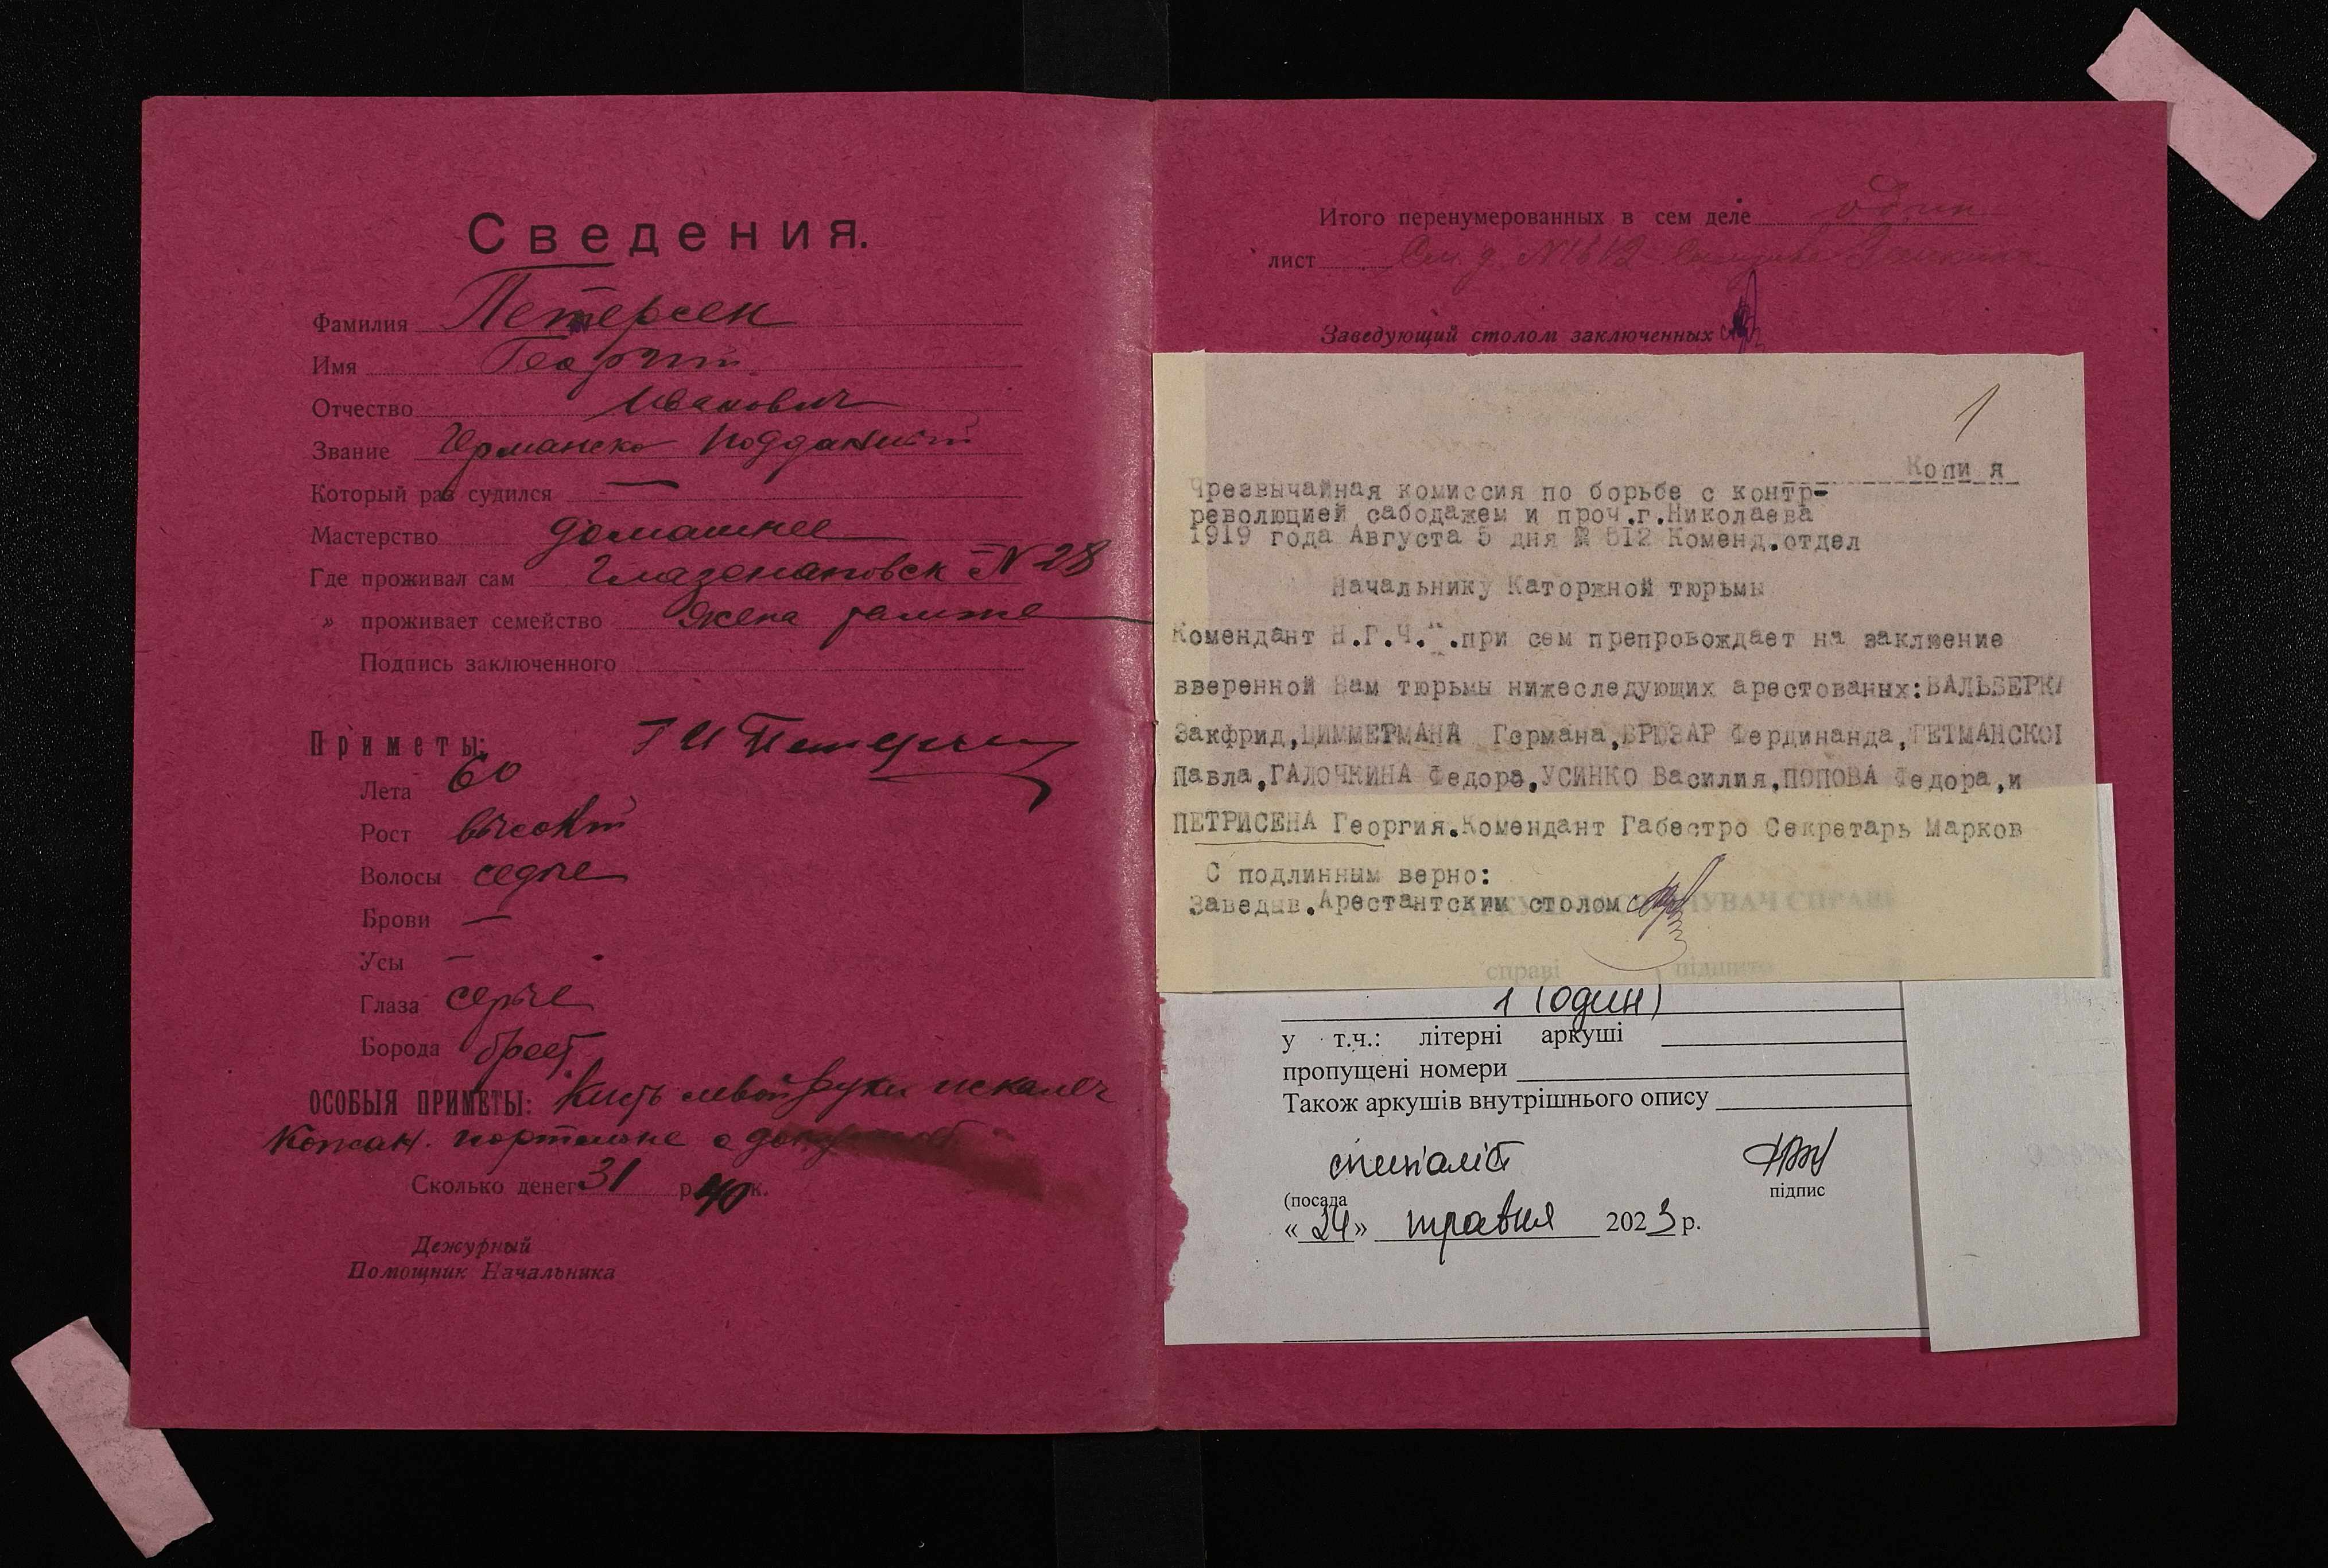 Сведения.
Фамилия Петерсен
Имя Георгий
Отчество Иванович
Звание Германско подданный
Который раз судился —
Мастерство домашнее
Где проживал сам Глазенаповск № 28
» проживает семейство жена там же
Подпись заключенного
Приметы:
Лета 60
Рост высокий
Волосы седые
Брови —
Усы —
Глаза серые
Борода бреет
ОСОБЫЯ ПРИМЕТЫ: Кисть левой руки искалеч
Кожан. портмоне с
Сколько денег 31 р 40 к.
Дежурный
Помощник Начальника
Итого перенумерованных в сем деле один
лист См. д. №
Заведующий столом заключенных
1
Копия
Чрезвычайная комиссия по борьбе с контр-
революцией сабодажем и проч.г.Николаева
1919 года Августа 5 дня № 512 Коменд.отдел
Начальнику Каторжной тюрьмы
Комендант Н.Г.Ч. .при сем препровождает на заклюение
вверенной Вам тюрьмы нижеследующих арестованых:ВАЛЬБЕРКА
Закфрид,ЦИММЕРМАНА Германа,БРЮЗАР Фердинанда,ГЕТМАНСКОГ
Павла,ГАЛОЧКИНА Федора,УСИНКО Василия,ПОПОВА Федора,и
ПЕТРИСЕНА Георгия.Комендант Габестро Секретарь Марков
С подлинным верно:
Заведыв.Арестантским столом
справі підшито
1 (один)
у т.ч.: літерні аркуші
пропущені номери
Також аркушів внутрішнього опису
спеціаліст
(посада
підпис
«24» травня 2023 р.